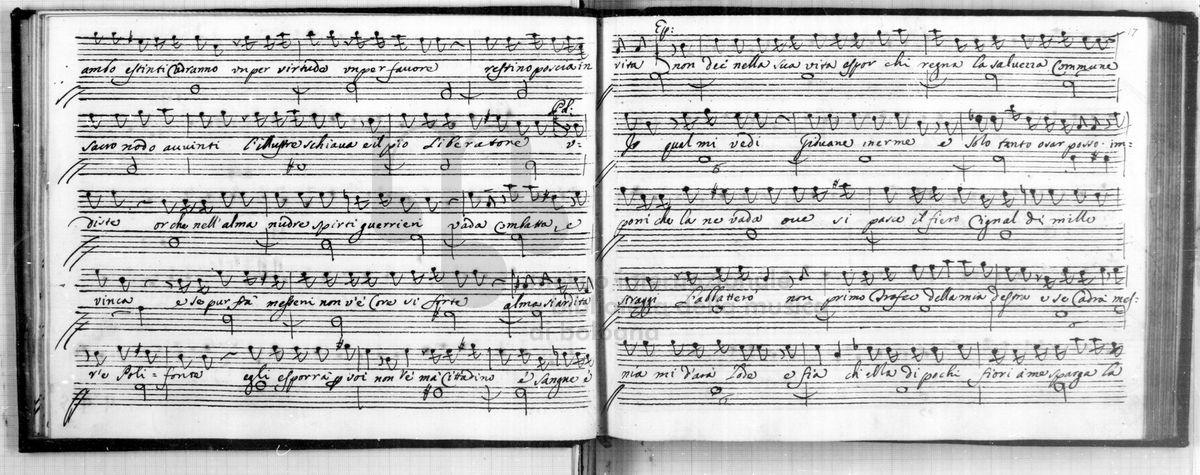 ambo estinti Cadranno vn per virtude vn per furore restino poscia in
Pol:
sacro nodo auuinti l'illustre schiava e il pio Liberatore v-
diste or che nell'alma nudre spirti guerrieri vada Combatta, e
vinca e se pur frà Messeni non v'è Core si forte alma si ardita
v'è Poli-fonte egli esporrà p voi non v'è mà Cittadino è sangue è
Ep: 17
vita non dei nella sua vita espor chi regna la salvezza Commune
Io qual mi vedi Giovane inerme e solo tanto osar posso im-
poni che la ne vada oue si pasce il fiero Cignal di mille
straggi l'abbattero non primo Trofeo della mia destra e se Cadrà mes-
nia mi darà lode e fia ch ella di pochi fiori à me sparga la
di bologna